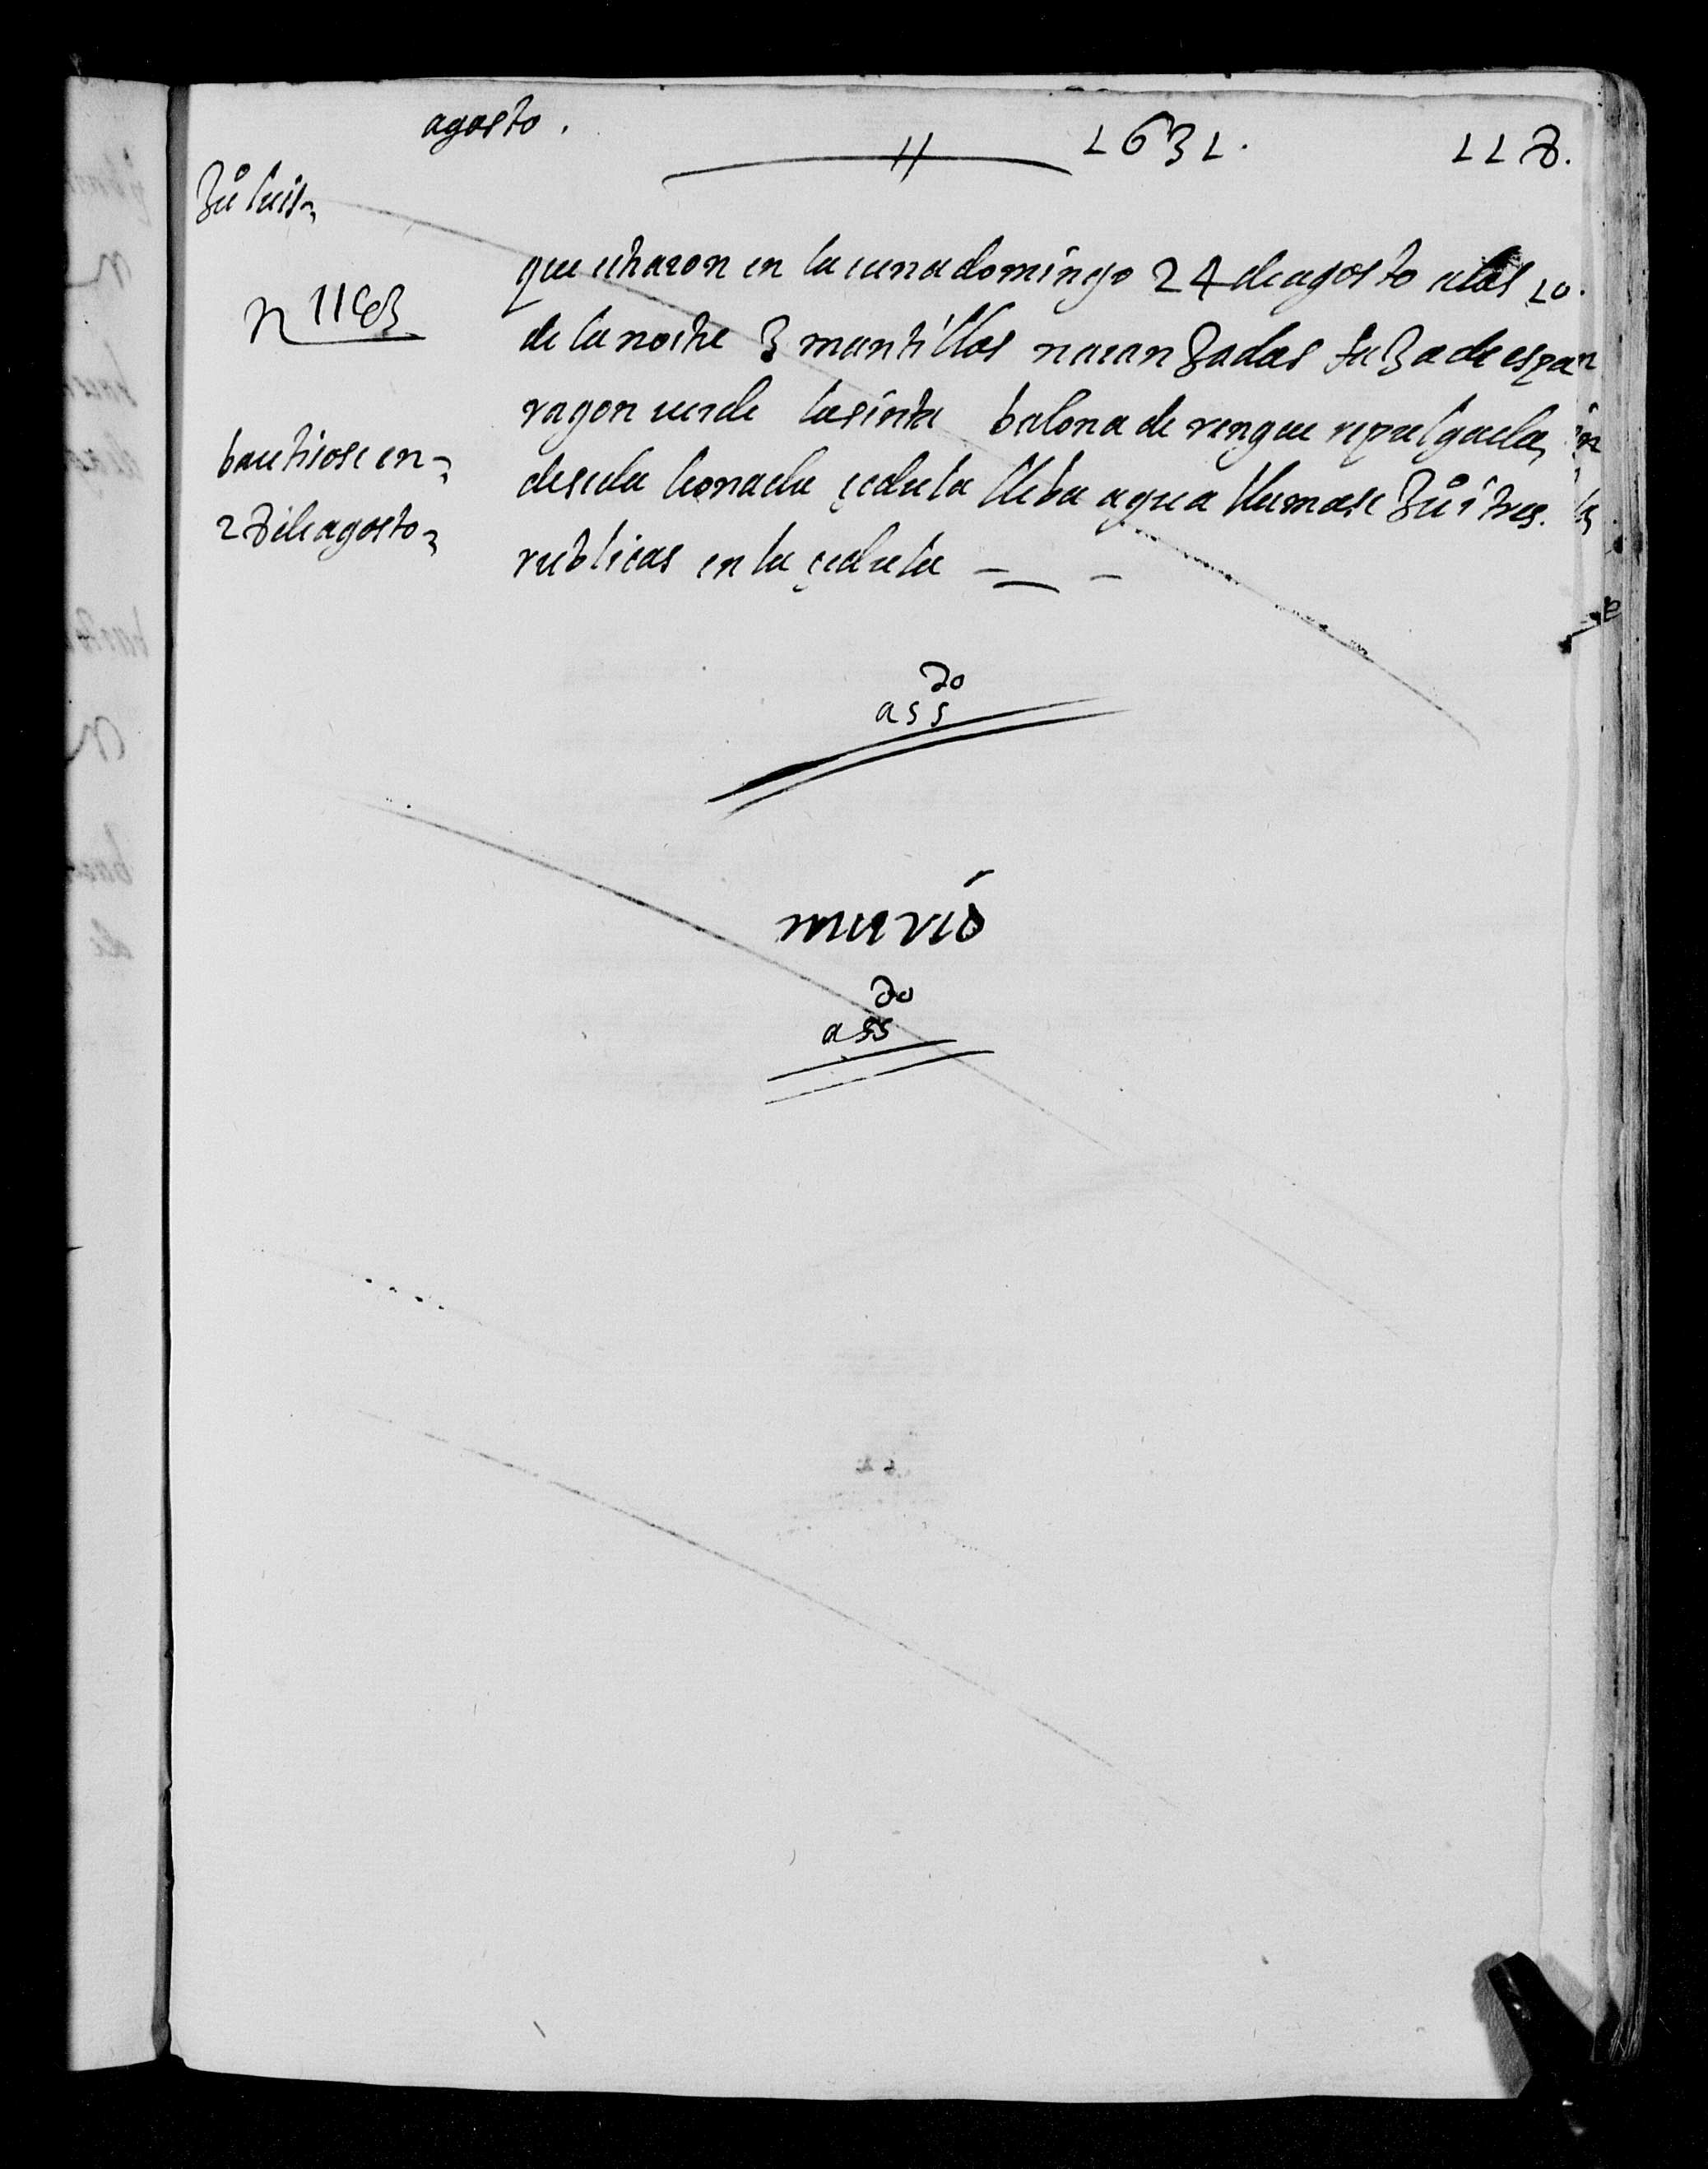 agosto .
1631.
118.
Juº luis
n 1163
bautisose en
28 de agosto
que echaron en la cuna domingo 24 de agosto a las 10.
de la noche 3 mantillas faxa de espa
ragon verde la sinta balona de rengue
de seda leonada çedula lleba agua llamase Juº i tres
rublicas en la çedula —
assdo
murió
assdo